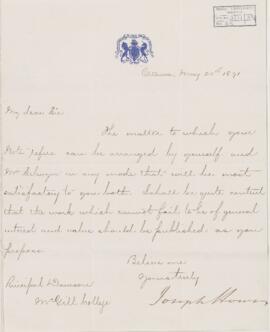 Ottawa May 20th 1871
My dear Sir
The matter to which your
note refers can be arranged by yourself and
Mr Selwyn in any mode that will be most
satisfactory to you both. I shall be quite content
that the work which cannot fail to be of general
interest and value should be published as you
propose
Believe me
Yours truly
Joseph Howe
Principal Dawson
McGill College